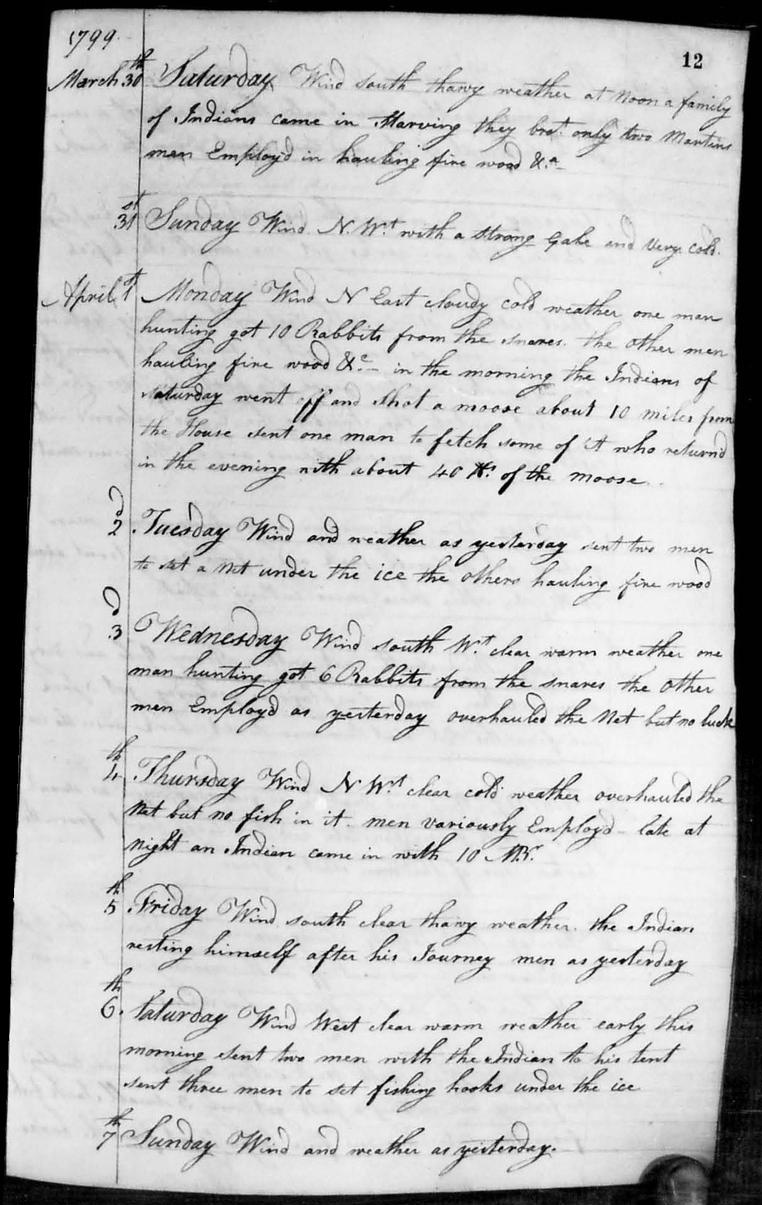 1799.
12
March 30th Saturday Wind South thawy weather at Noon a family
of Indians came in Starving they brot. only two Martins
men Employ'd in hauling fire wood &a
31st Sunday Wind N. Wt with a strong Gale and Very Cold.
April 1st Monday Wind N East cloudy cold weather one man
hunting got 10 Rabbits from the snares. the other men
hauling fire wood &c in the morning the Indians of
Saturday went off and shot a moose about 10 miles from
the House sent one man to fetch some of it who return'd
in the evening with about 40 lbs. of the moose.
2d Tuesday Wind and weather as yesterday sent two men
to set a Net under the ice the others hauling fire wood
3d Wednesday Wind south Wt. clear warm weather one
man hunting got 6 Rabbits from the snares the Other
men Employ'd as yesterday overhauled the Net but no luck
4th Thursday Wind N Wt clear cold weather overhauled the
Net but no fish in it. men variously Employ'd late at
night an Indian came in with 10 MBr.
5th Friday Wind south clear thawy weather. the Indian
resting himself after his Journey men as yesterday
6th. Saturday Wind West clear warm weather early this
morning sent two men with the Indian to his tent
sent three men to set fishing hooks under the ice
7th Sunday Wind and weather as yesterday.